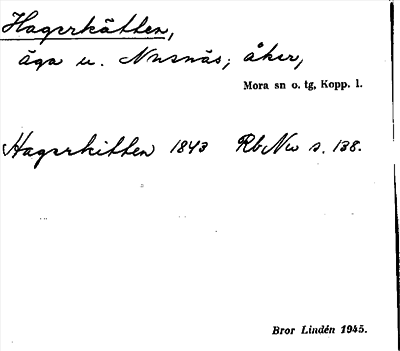 Hagerkätten,
äga u. Nusnäs; åker,
Mora sn o. tg, Kopp. l.
Hagerkitten 1843 RbNw s. 138.
Bror Lindén 1945.